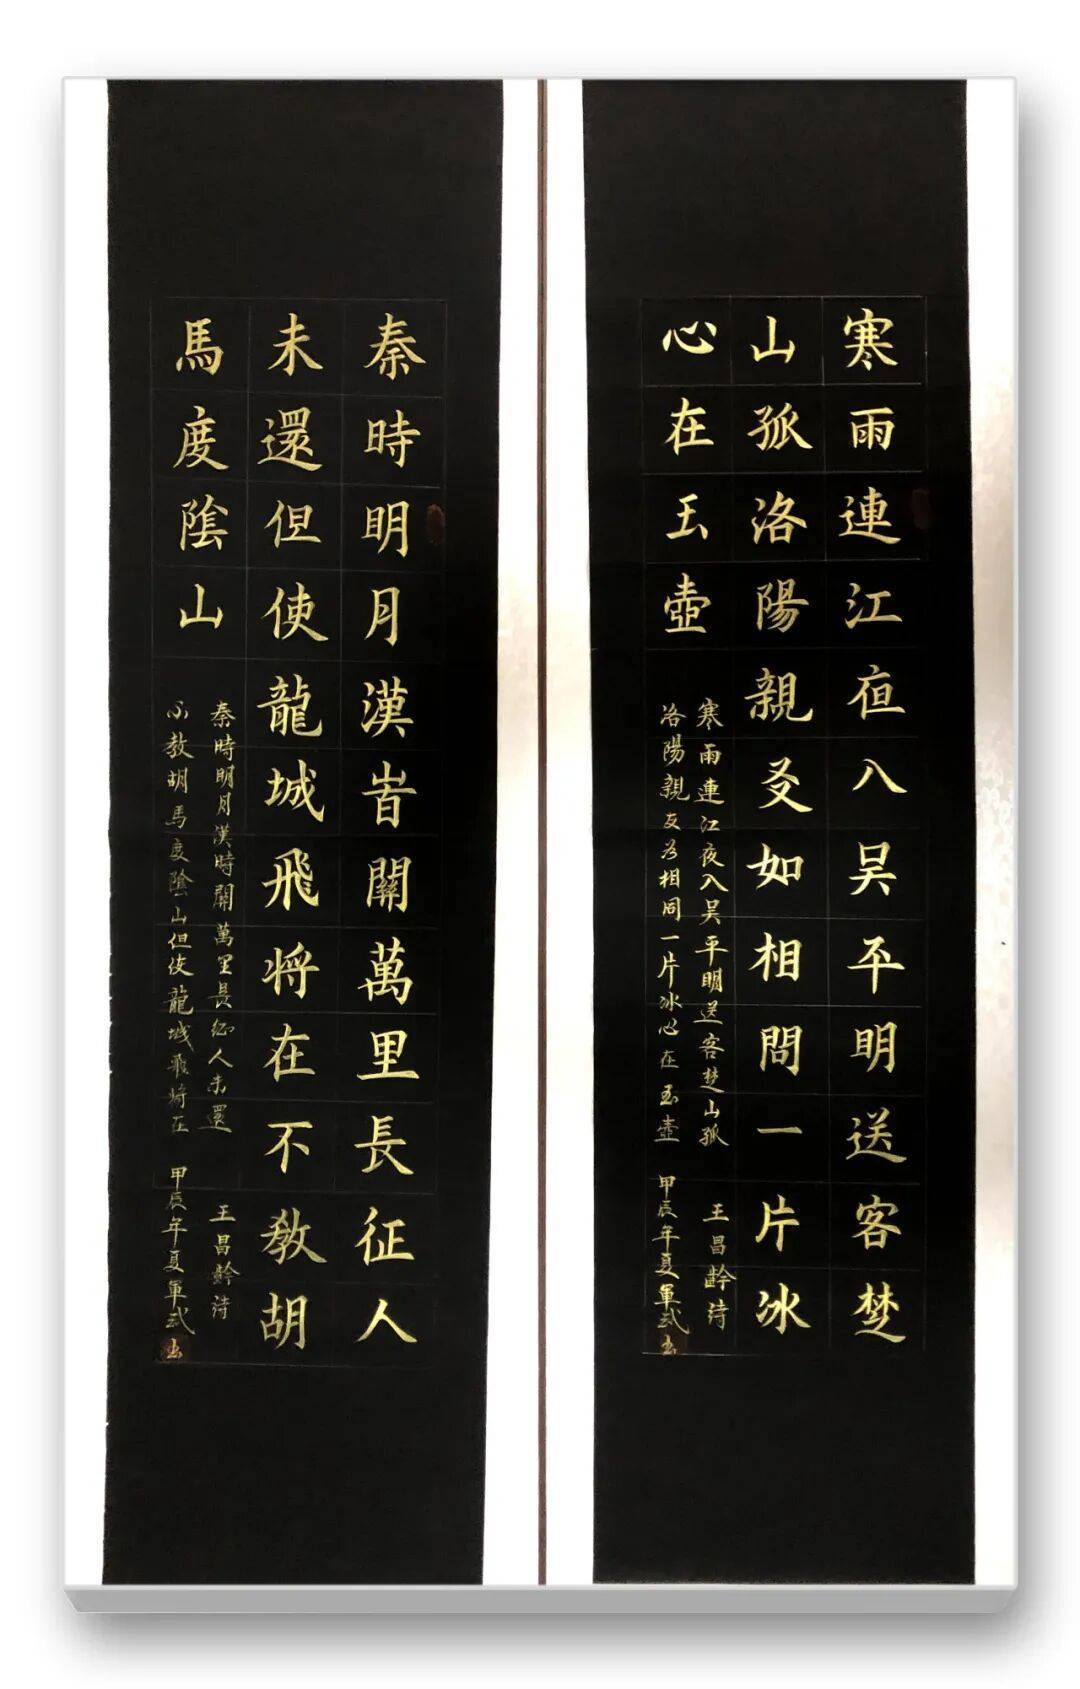 寒雨連江亱入吴平明送客楚
山孤洛陽親友如相問一片冰
心在玉壺
寒雨連江夜入吴平明送客楚山孤 王昌齡诗
洛陽親友为相同一片冰心在玉壺 甲辰年夏軍武书
秦時明月漢旹關萬里長征人
未還但使龍城飛将在不教胡
馬度陰山
秦時明月漢時關萬里長征人未還 王昌齡诗
不教胡馬度陰山但使龍城飛将在 甲辰年夏軍武书